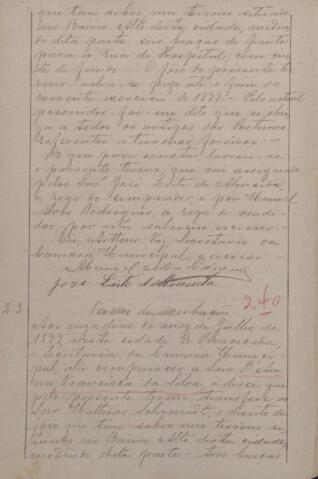 que tem sobre um terreno situado
no Bairro Alto desta cidade, medin-
do dita parte, seis braças de frente
para a rua do Hospital, com
de fundo. - O foro do presente ter-
reno acha-se pago até o fim do
corrente exercicio de 1899. - Pelo actual
possuidor foi-me dito que se obri-
ga a todos os artigos das Posturas
referentes a terrenos foreiros. -
Do que para constar lavrou-se
o presente termo, que vai assignado
pelos Snrs José Leite de Almeida,
a rogo do comprador, e por Manoel
Alves Rodrigues, a rogo do vende-
dor, por não saberem escrever.
Eu, Arthur Vaz, Secretario da
Camara Municipal, o escrevi
Manoel Alves
José Leite d'Almeida
240
23
Termo de averbação
Aos onze dias do mez de Julho de
1899, nesta cidade de
e Secretaria da Camara Munici-
pal, ahi compareceu a Sra D. An-
na Francisca da Silva, e disse que
pelo presente termo, transfere ao
Snr Mathias Schmidt, o direito de
foro que tem sobre um terreno si-
tuado no Bairro Alto desta cidade,
medindo dita parte - tres braças